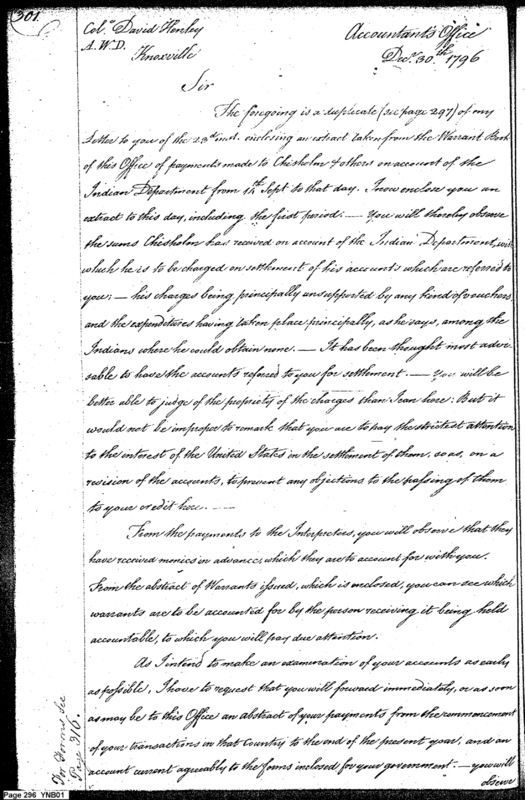 301.
Colº. David Henley
A. W. D.
Knoxville
Accountant's Office
Decr. 30.th 1796
Sir
The foregoing is a duplicate (see page 297) of my
Letter to you of the 23d inst. enclosing an extract taken from the Warrant Book
of this Office of payments made to Chisholm & others on account of the
Indian Department from 14th Sept to that day. I now enclose you an
extract to this day, including the first period. — You will thereby observe
the sums Chisholm has received on account of the Indian Department, with
which he is to be charged on settlement of his accounts which are referred to
you; — his charges being principally unsupported by any kind of vouchers,
and the expenditures having taken place principally, as he says, among the
Indians where he could obtain none. — It has been thought most advi-
sable to have the accounts referred to you for settlement. — You will be
better able to judge of the propriety of the charges than I can here: But it
would not be improper to remark that you are to pay the strictest attention
to the interest of the United States in the settlement of them, so as, on a
revision of the accounts, to prevent any objections to the passing of them
to your credit here. —
From the payments to the Interpreters, you will observe that they
have received monies in advance, which they are to account for with you.
From the abstract of Warrants issued, which is enclosed, you can see which
warrants are to be accounted for by the person receiving it being held
accountable, to which you will pay due attention.
As I intend to make an examination of your accounts as early
as possible, I have to request that you will forward immediately, or as soon
as may be to this Office an abstract of your payments from the commencement
of your transactions in that Country to the end of the present year, and an
account current agreeably to the forms inclosed for your government. — you will
observe
For Forms See
Page 316.
Page 296 YNB01